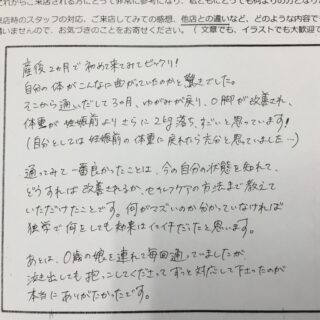 れから来店される方にとって非常に参考になり、私たちにとっても何よりの力となりま
来店時のスタッフの対応、ご来店してみての感想、他店との違いなど、どのような内容で
構いませんので、お気づきのことをお寄せください。（ 文章でも、イラストでも大歓迎で
産後2ヵ月で初めて来てみてビックリ!
自分の体がこんなに曲がっていたのかと驚きでした。
そこから通いだして3ヶ月、ゆがみが戻り、O脚が改善され、
体重が妊娠前よりさらに2kg落ち、すごいと思っています!
(自分としては妊娠前の体重に戻れたら充分と思っていました…)
通ってみて一番良かったことは、今の自分の状態を知れて、
どうすれば改善されるか、セルフケアの方法まで教えて
いただけたことです。何がマズいのか分かっていなければ
独学で何をしても効果はイマイチだったと思います。
あとは、0歳の娘を連れて毎回通っていましたが、
泣き出しても抱っこしてくださってずっと対応して下さったのが
本当にありがたかったです。